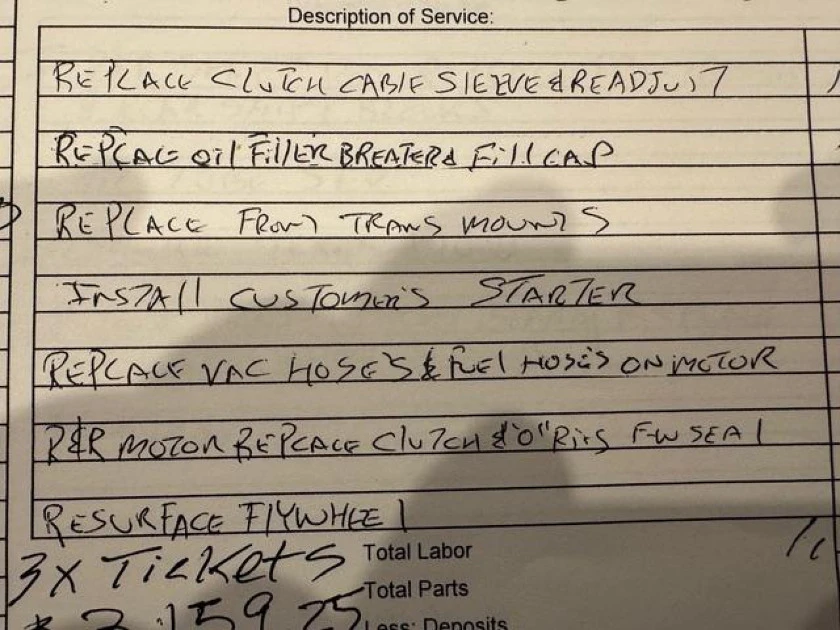 Description of Service:
REPLACE CLUTCH CABLE SLEEVE & READJUST
REPLACE Oil Filler BREATER & Fill CAP
REPLACE FRONT TRANS MOUNTS
INSTAll CUSTOMER'S STARTER
REPLACE VAC HOSE'S & FUEl HOSE'S ON MOTOR
R&R MOTOR REPLACE ClUTCH & "O" Rings FW SEAl
RESURFACE FlYWHEEl
3X TickETS
Total Labor
$ 3,159.25
Total Parts
Less: Deposits